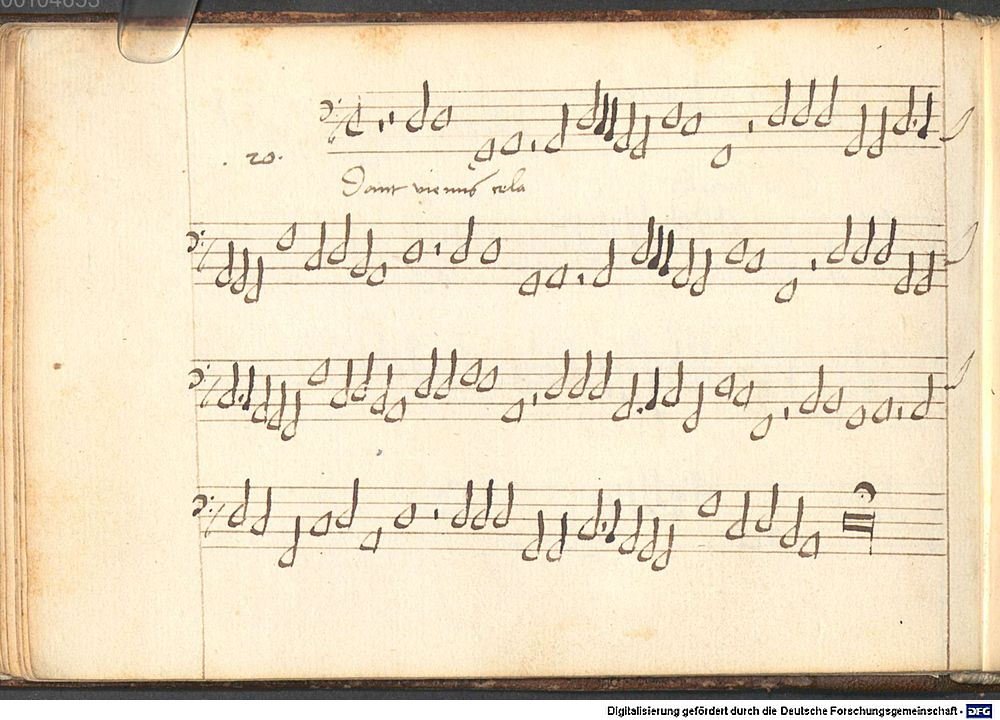 00104633
. 20.
Dont vienns cela
Digitalisierung gefördert durch die Deutsche Forschungsgemeinschaft - DFG